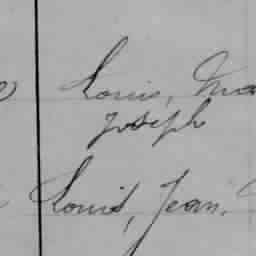 Louis, Ma
Joseph
Louis, Jean.